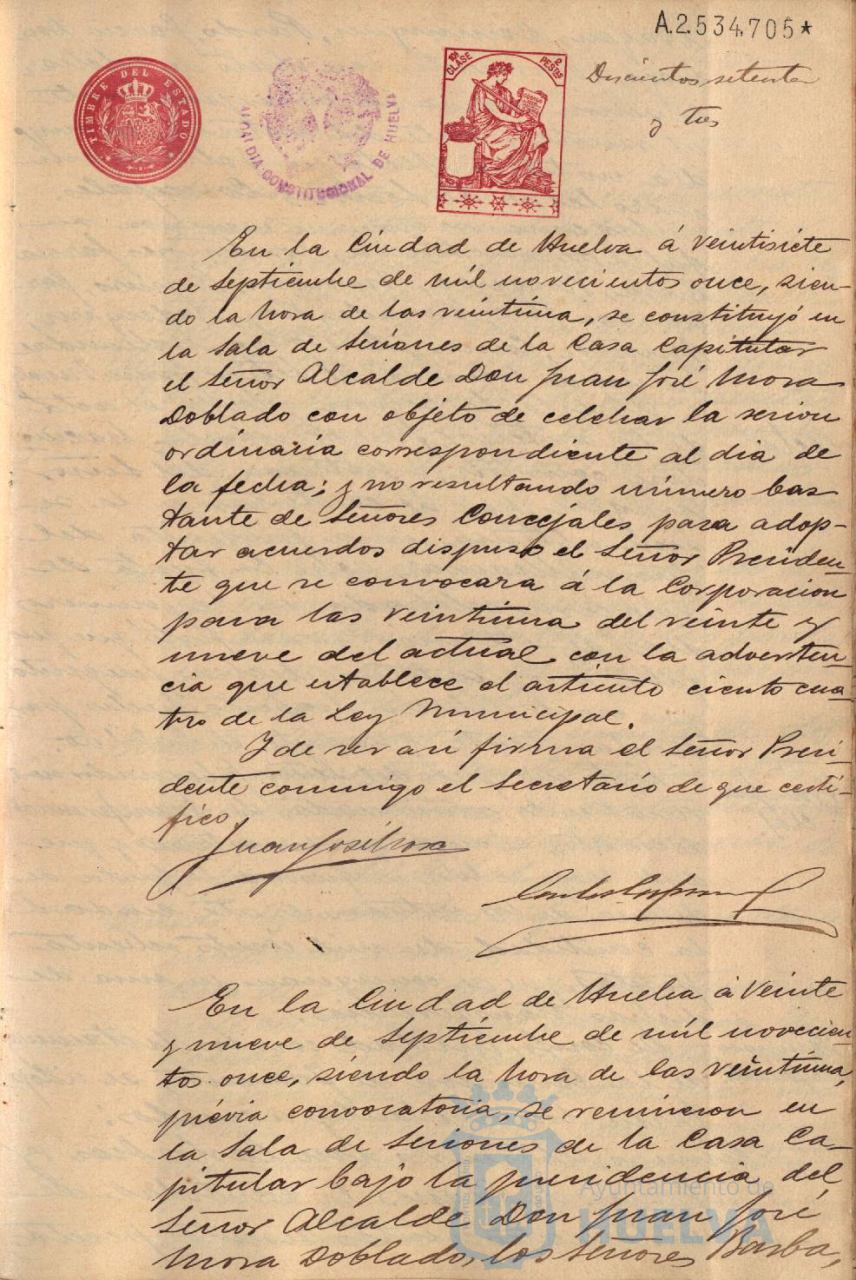 A.2.534.705*
TIMBRE DEL ESTADO
ALCALDIA CONSTITUCIONAL DE HUELVA
10ª CLASE
2 PESETAS
Doscientos setenta
y tres
En la Ciudad de Huelva á veintisiete
de Septiembre de mil novecientos once, sien-
do la hora de las veintiuna, se constituyó en
la Sala de Sesiones de la Casa Capitular
el Señor Alcalde Don Juan José Mora
Doblado con objeto de celebrar la sesion
ordinaria correspondiente al dia de
la fecha; y no resultando número bas
tante de Señores Concejales para adop-
tar acuerdos dispuso el Señor Presiden-
te que se convocara á la Corporacion
para las veintiuna del veinte y
nueve del actual con la adverten-
cia que establece el artículo ciento cua-
tro de la Ley Municipal.
Y de ser así firma el Señor Presi-
dente conmigo el Secretario de que certi-
fico.
Juan José Mora
En la Ciudad de Huelva á veinte
y nueve de Septiembre de mil novecien-
tos once, siendo la hora de las veintiuna,
prévia convocatoria, se reunieron en
la Sala de Sesiones de la Casa Ca-
pitular bajo la presidencia del
Señor Alcalde Don Juan José
Mora Doblado, los Señores Barba,
Ayuntamiento de
HUELVA